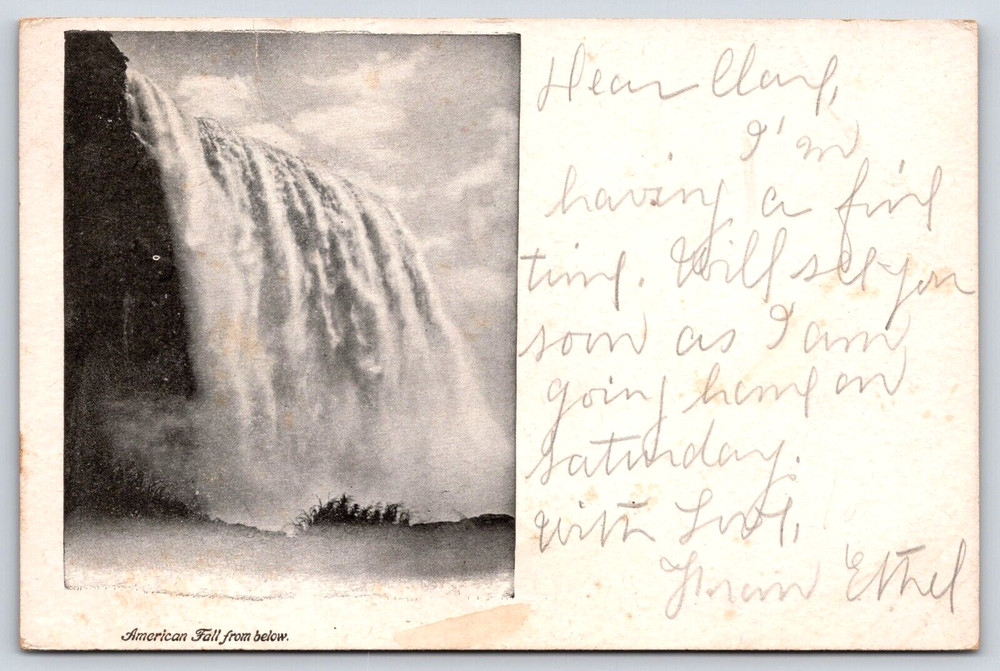 Dear Clare,
I'm
having a fine
time. Will see you
soon as I am
going home on
Saturday.
With Love,
From Ethel
American Fall from below.